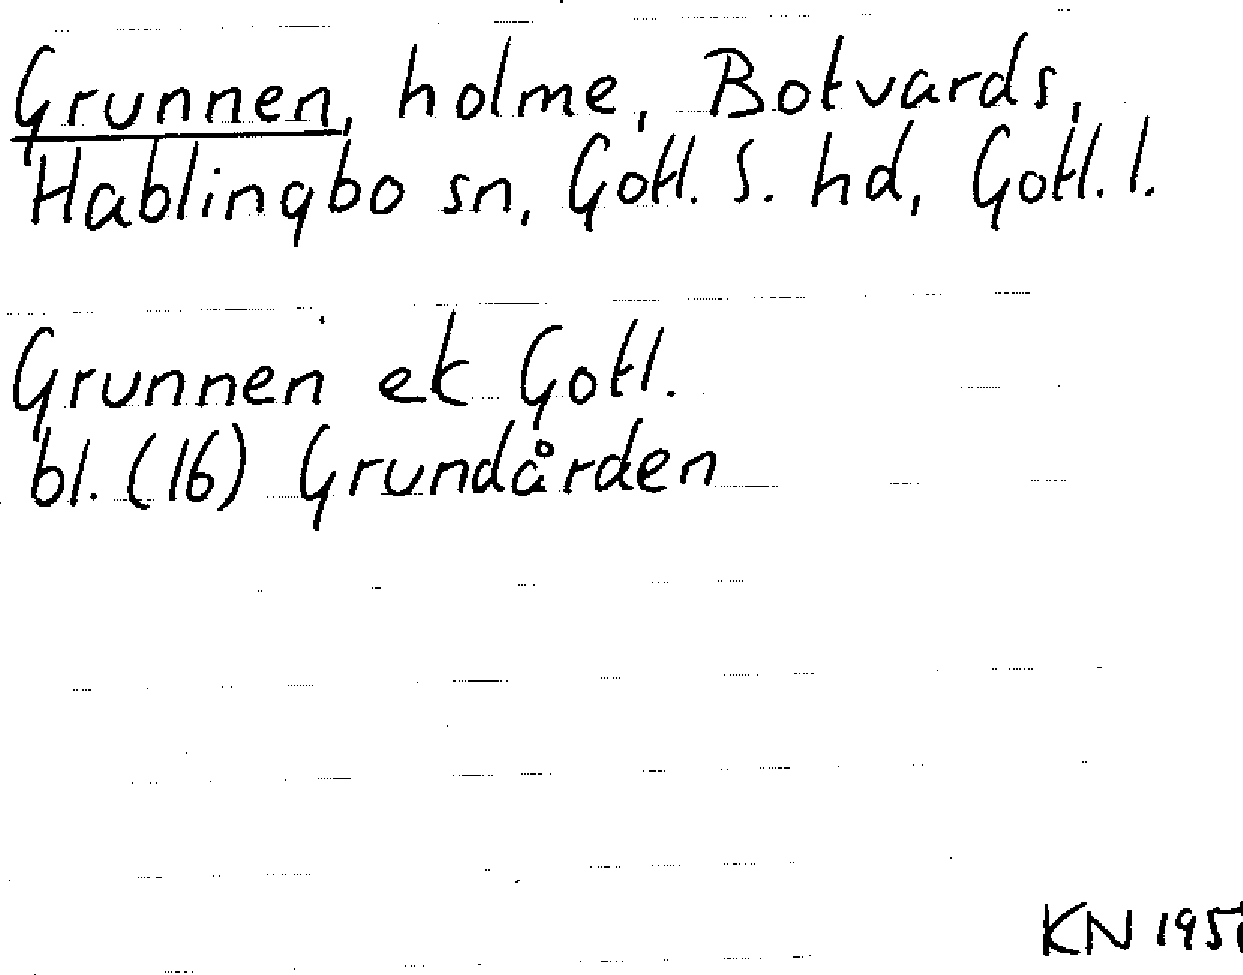 Grunnen, holme, Botvards,
Hablingbo sn, Gotl. S. hd, Gotl. l.
Grunnen ek Gotl.
bl. (16) Grundården
KN 1951